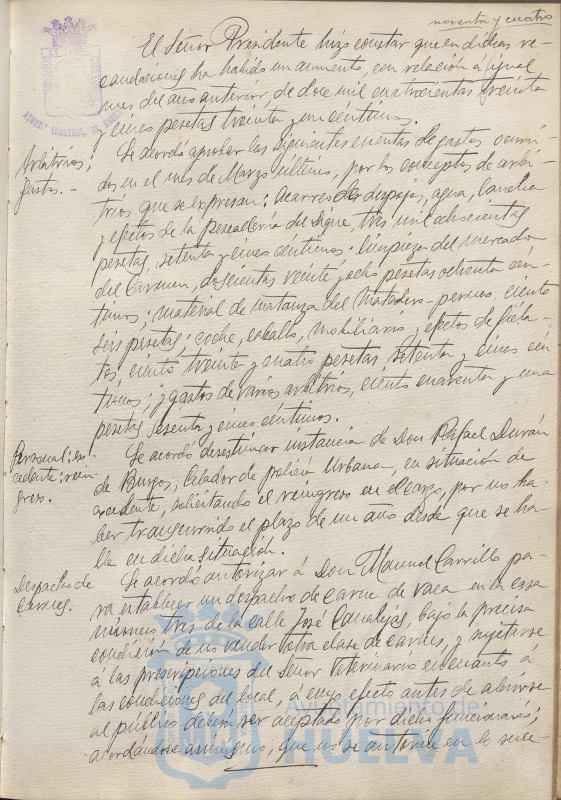 noventa y cuatro
El Señor Presidente hizo constar que en dichas re-
caudaciones ha habido un aumento, con relación á igual
mes del año anterior de doce mil cuatrocientas treinta
y cinco pesetas treinta y un céntimos.
Arbitrios;
gastos.-
Se acordó aprobar las siguientes cuentas de gastos ocurri-
dos en el mes de Marzo último, por los conceptos de arbi-
trios que se expresan: acarreo de despojos, agua,
y efectos de la pescadería del dique, tres mil doscientas
pesetas, setenta y cinco céntimos: limpieza del mercado
del Carmen, doscientas veinte y ocho pesetas ochenta cén-
timos; material de matanza del Matadero - perneo, ciento
seis pesetas; coche, caballo, mobiliario y efectos de fiela-
tos, ciento treinta y cuatro pesetas setenta y cinco cén-
timos; y gastos de varios arbitrios, ciento cuarenta y una
pesetas sesenta y cinco céntimos.
Personal; ex-
cedente; rein-
greso.
Se acordó desestimar instancia de Don Rafael Durán
de Burgos, Celador de policía Urbana, en situación de
excedente, solicitando el reingreso en el cargo, por no ha-
ber transcurrido el plazo de un año desde que se ha-
lla en dicha situación.
Despacho de
carnes.
Se acordó autorizar á Don Manuel Carrillo pa-
ra establecer un despacho de carne de vaca en la casa
número tres de la calle José Canalejas, bajo la precisa
condición de no vender otra clase de carnes, y sujetarse
á las prescripciones del Señor Veterinario en cuanto á
las condiciones del local, á cuyo efecto antes de abrirse
al público deberá ser aceptado por dicho funcionario;
acordándose asimismo, que no se autorice en lo suce-
Ayuntamiento de
HUELVA